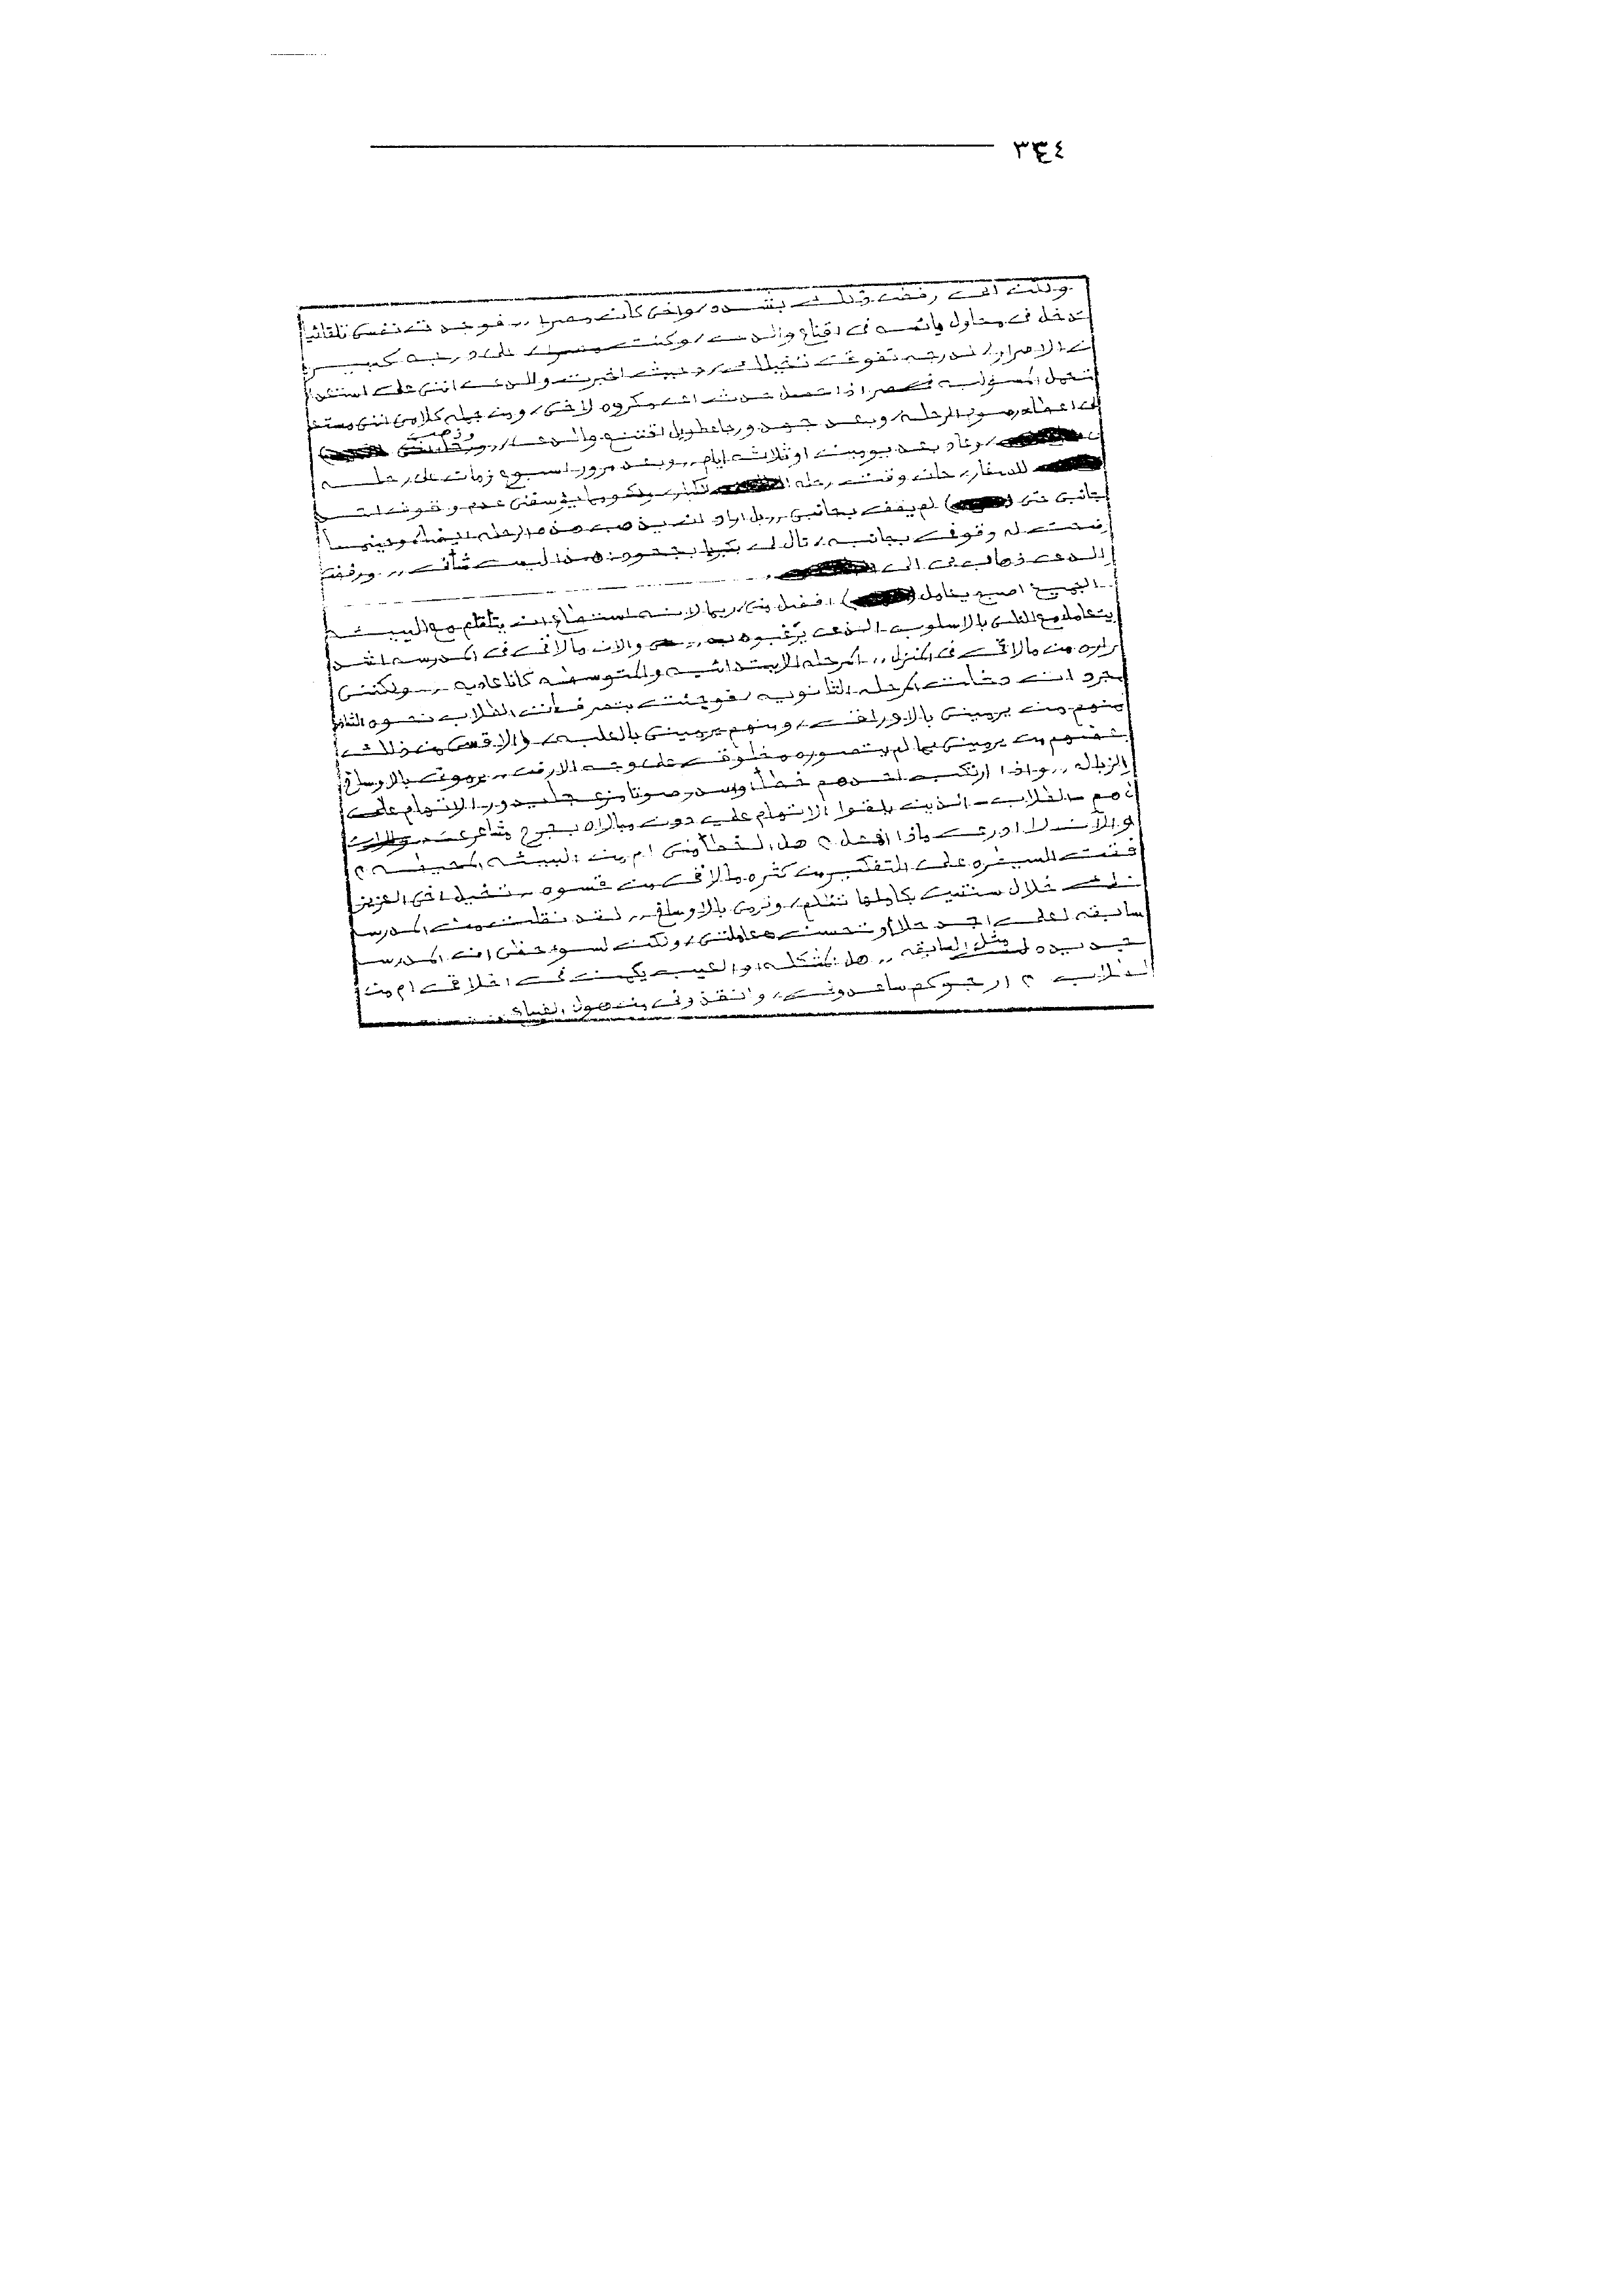 ٣٤٤
ولكن ابي رفض ذلك بشده، واخي كان مصرا،، فوجدت نفسي تلقائيا
تدخل في محاوله يائسه في اقناع والدي، وكنت مصرا، على درجه كبيره
من الاصرار، لدرجه تفوق تخيلك، حيث اخبرت والدي انني على استعداد
تحمل المسؤليه في مصر اذا حصل حدث اي مكروه لاخي، ومن جملة كلامي انني مستعد
اعطاء رسوم الرحله، وبعد جهد ورجاء طويل اقتنع والدي،، وذهب
وعاد بعد يومين او ثلاثه ايام،، وبعد مرور اسبوع زمان على رحله
للصغار، حان وقت رحله الكبار، ولكن ما يؤسفني عدم وقوف احد
بجانبي حتى لم يقف بجانبي،، بل اراد ان يذهب هذه الرحله ايضا، وحينما
اوضحت له وقوفي بجانبه، قال لي هذا ليس شأني،، ورفض
والدي ذهابي الى
الجميع اصبح يعامل افضل مني، ربما لانه استطاع ان يتأقلم مع البيئه
يتعامل مع الناس بالاسلوب الذي يرغبوه،، والان مالاقي في المدرسه اشد
مراره من مالاقي في المنزل،، المرحله الابتدائيه والمتوسطه كانا عاديه،، ولكنني
بمجرد ان دخلت المرحله الثانويه، فوجئت بتصرفات الطلاب نحوه
منهم من يرميني بالاوراق، ومنهم يرميني بالعلب، والاقسى من ذلك
بعضهم من يرميني بما لم يتصوره مخلوق على وجه الارض،، يرموني بالاوساخ
الزباله،، واذا ارتكب احدهم خطأ واصدر صوتا مزعجا يدور الاتهام علي
هم الطلاب الذين يلقوا الاتهام علي دون مبالاه بجرح مشاعري
والآن لا ادري ماذا افعل؟ هل الخطأ مني ام من البيئه المحيطه؟
فقدت السيطره على التفكير من كثره مالاقي من قسوه،، تخيل اخي العزيز
انني خلال سنتين بكاملها تظلم، وترمى بالاوساخ،، لقد نقلت من المدرسه
السابقه لعلي اجد حلا أو تحسن معاملتي، ولكن لسوء حظي ان المدرسه
الجديده مثل السابقه،، هل المشكله او العيب يكمن في اخلاقي ام من
الطلاب؟ ارجوكم ساعدوني، وانقذوني من هول الضياع